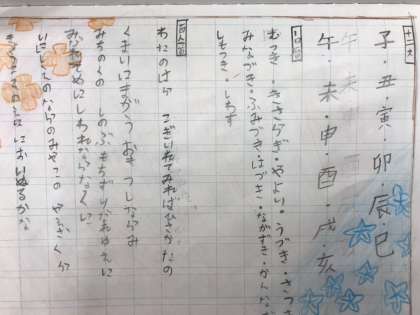 十二支
子・丑・寅・卯・辰・巳
午・未・申・酉・戌・亥
むつき・きさらぎ・やよい・うづき・さつき
みなづき・ふみづき・はづき・ながつき・かんなな
しもつき・しわす
わたのはら こぎいでてみればひさかたの
くもいにまがう おきつしらなみ
みちのくの しのぶもちずりたれゆえに
みだれそめにしわれならなくに
いにしえの ならのみやこの やえざくら
きょうここのえに においぬるかな